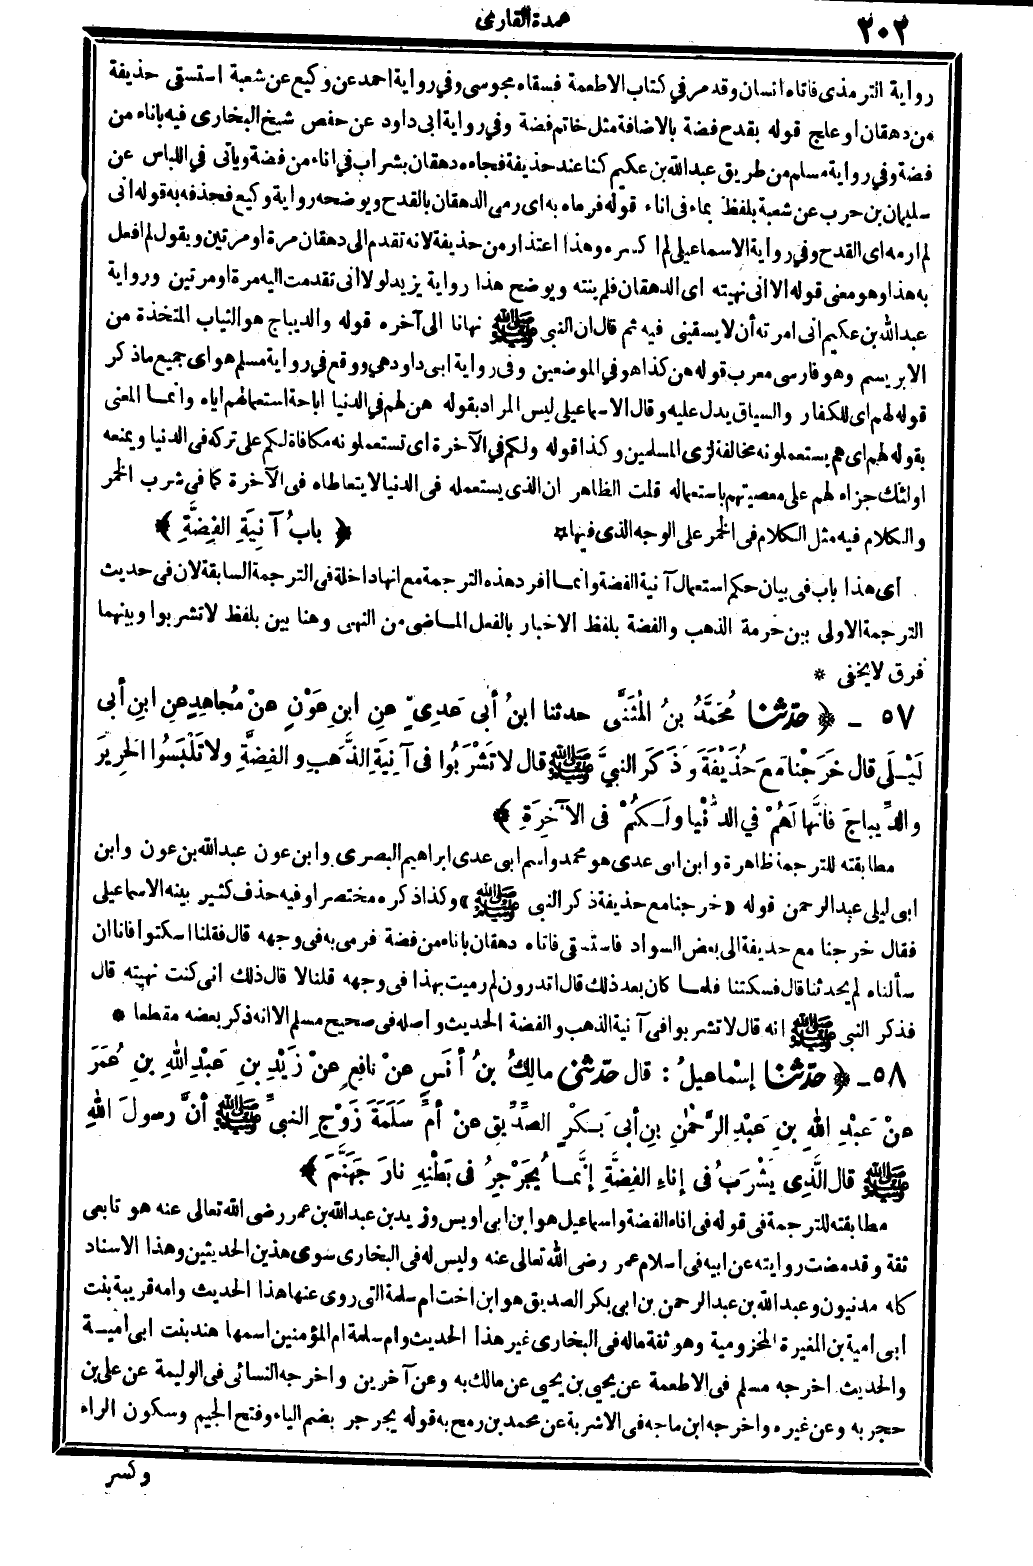 ٢٠٢
عمدة القارى
رواية الترمذى فاتاه انسان وقد مر في كتاب الاطعمة فسقاه مجوسى وفي رواية احمد عن وكيع عن شعبة استسقى حذيفة
من دهقان او علج قوله بقدح فضة بالاضافة مثل خاتم فضة وفي رواية ابى داود عن حفص شيخ البخارى فيه باناء من
فضة وفي رواية مسلم من طريق عبدالله بن عكيم كنا عند حذيفة فجاءه دهقان بشراب في اناء من فضة ويأتى في اللباس عن
سليمان بن حرب عن شعبة بلفظ بماء فى اناء قوله فرماه به اى رمى الدهقان بالقدح ويوضحه رواية وكيع فحذفه به قوله انى
لم ارمه اى القدح وفي رواية الاسماعيلى لم اكسره وهذا اعتذار من حذيفة لانه تقدم الى دهقان مرة او مرتين ويقول لم افعل
به هذا وهو معنى قوله الا انى نهيته اى الدهقان فلم ينته ويوضح هذا رواية يزيد لولا انى تقدمت اليه مرة او مرتين ورواية
عبدالله بن عكيم انى امرته أن لا يسقينى فيه ثم قال ان النبى ﷺ نهانا الى آخره قوله والديباج هو الثياب المتخذة من
الابريسم وهو فارسى معرب قوله هن كذا هو في الموضعين وفى رواية ابى داود هي ووقع في رواية مسلم هو اى جميع ماذكر
قوله لهم اى للكفار والسياق يدل عليه وقال الاسماعيلى ليس المراد بقوله هن لهم في الدنيا اباحة استعمالهم اياه وانما المعنى
بقوله لهم اى هم يستعملونه مخالفة لزى المسلمين وكذا قوله ولكم في الآخرة اى تستعملونه مكافاة لكم على تركه في الدنيا ويمنعه
اولئك جزاء لهم على معصيتهم باستعماله قلت الظاهر ان الذى يستعمله فى الدنيا لا يتعاطاه فى الآخرة كما فى شرب الخمر
والكلام فيه مثل الكلام فى الخمر على الوجه الذى فيها * ﴿ بابُ آنِيَةِ الفِضَّةِ ﴾
اى هذا باب فى بيان حكم استعمال آنية الفضة وانما افرد هذه الترجمة مع انها داخلة فى الترجمة السابقة لان فى حديث
الترجمة الاولى بين حرمة الذهب والفضة بلفظ الاخبار بالفعل الماضى من النهى وهنا بين بلفظ لاتشربوا وبينهما
فرق لا يخفى *
٥٧ - ﴿ حدّثنا مُحَمَّدُ بنُ المُثَنَّى حدثنا ابنُ أبى عَدِيٍّ عنِ ابنِ عَوْنٍ عنْ مُجاهِدٍ عنِ ابنِ أبى
لَيْلَى قال خرَجْنا معَ حُذَيْفَةَ وذَكَرَ النبيَّ ﷺ قال لا تَشْرَبُوا فى آنِيَةِ الذَّهَبِ والفِضَّةِ ولا تَلْبَسُوا الحَرِيرَ
والدِّيباجَ فانَّها لَهُمْ في الدُّنْيا ولَكُمْ فى الآخِرَةِ ﴾
مطابقته للترجمة ظاهرة وابن ابى عدى هو محمد واسم ابى عدى ابراهيم البصرى وابن عون عبدالله بن عون وابن
ابى ليلى عبدالرحمن قوله «خرجنا مع حذيفة ذكر النبى ﷺ» وكذا ذكره مختصرا وفيه حذف كثير بينه الاسماعيلى
فقال خرجنا مع حذيفة الى بعض السواد فاستسقى فاتاه دهقان باناء من فضة فرمى به فى وجهه قال فقلنا اسكتوا فانا ان
سألناه لم يحدثنا قال فسكتنا فلما كان بعد ذلك قال اتدرون لم رميت بهذا فى وجهه قلنا لا قال ذلك انى كنت نهيته قال
فذكر النبى ﷺ انه قال لا تشربوا فى آنية الذهب والفضة الحديث واصله فى صحيح مسلم الا انه ذكر بعضه مقطعا *
٥٨ - ﴿ حدّثنا إسْماعيلُ : قال حدّثنى مالِكُ بنُ أنَسٍ عنْ نافِعٍ عنْ زَيْدِ بنِ عَبْدِ اللهِ بنِ عُمَرَ
عنْ عَبْدِ اللهِ بنِ عَبْدِ الرَّحْمٰنِ بنِ أبى بَكْرٍ الصِّدِّيقِ عنْ أُمِّ سَلَمَةَ زَوْجِ النبيِّ ﷺ أنَّ رسولَ اللهِ
ﷺ قال الَّذِى يَشْرَبُ فى إناءِ الفِضَّةِ إنَّما يُجَرْجِرُ فى بَطْنِهِ نارَ جَهَنَّمَ ﴾
مطابقته للترجمة فى قوله فى اناء الفضة واسماعيل هو ابن ابى اويس وزيد بن عبدالله بن عمر رضى الله تعالى عنه هو تابعى
ثقة وقد مضت روايته عن ابيه فى اسلام عمر رضى الله تعالى عنه وليس له فى البخارى سوى هذين الحديثين وهذا الاسناد
كله مدنيون وعبدالله بن عبدالرحمن بن ابى بكر الصديق هو ابن اخت ام سلمة التى روى عنها هذا الحديث وامه قريبة بنت
ابى امية بن المغيرة المخزومية وهو ثقة ماله فى البخارى غير هذا الحديث وام سلمة ام المؤمنين اسمها هند بنت ابى أمية
والحديث اخرجه مسلم فى الاطعمة عن يحيى بن يحيى عن مالك به وعن آخرين واخرجه النسائى فى الوليمة عن على بن
حجر به وعن غيره واخرجه ابن ماجه فى الاشربة عن محمد بن رمح به قوله يجرجر بضم الياء وفتح الجيم وسكون الراء
وكسر